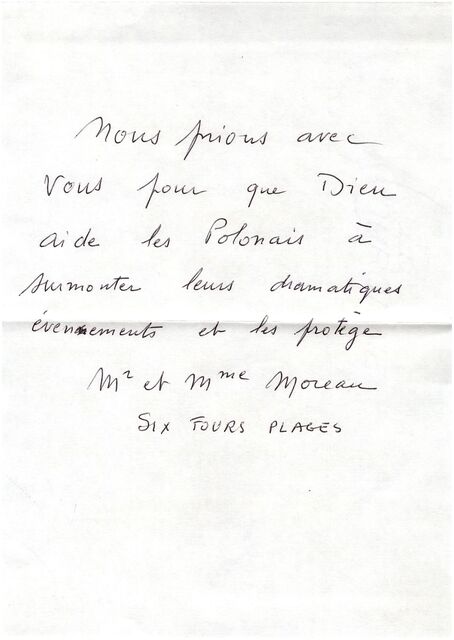 Nous prions avec
Vous pour que Dieu
aide les Polonais à
surmonter leurs dramatiques
évennements et les protège
Mr et Mme Moreau
SIX FOURS PLAGES